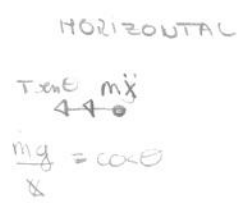 HORIZONTAL
Tsenθ mẍ
mg/x = cosθ